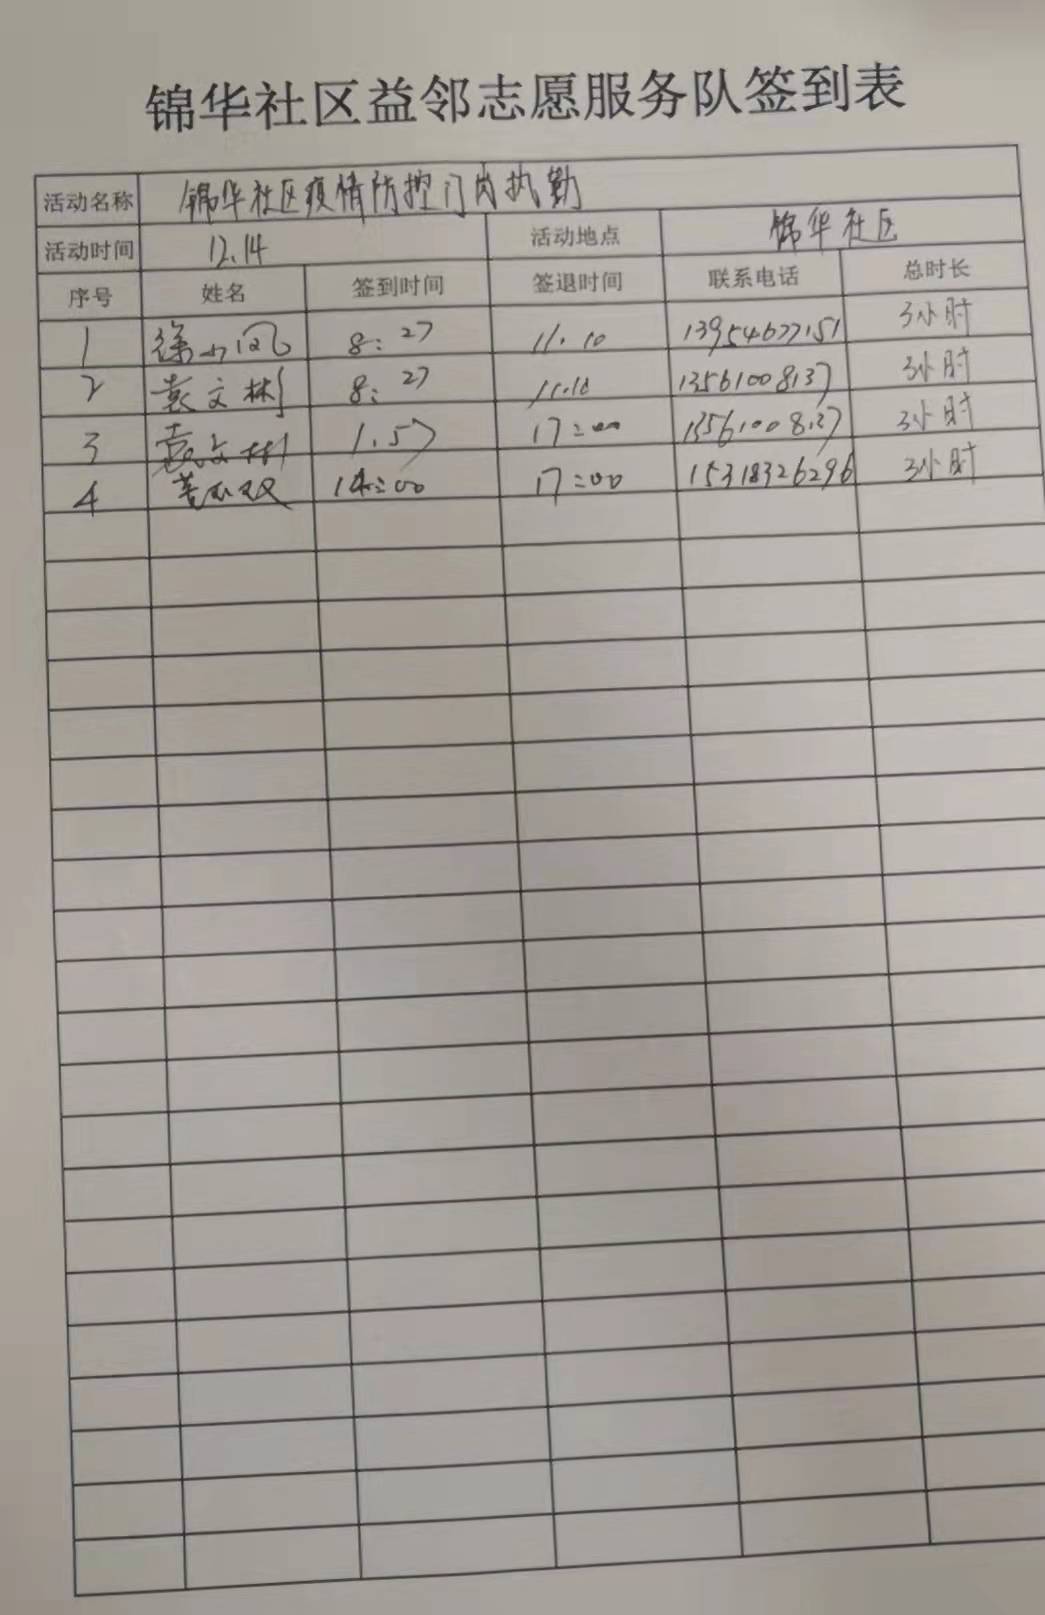 锦华社区益邻志愿服务队签到表
活动名称 锦华社区疫情防控门岗执勤
活动时间 12.14 活动地点 锦华社区
序号 姓名 签到时间 签退时间 联系电话 总时长
1 徐小凤 8:27 11.10 13954677151 3小时
2 袁文彬 8:27 11.10 13561008137 3小时
3 袁文彬 1.57 17:00 13561008137 3小时
4 14:00 17:00 15318326296 3小时